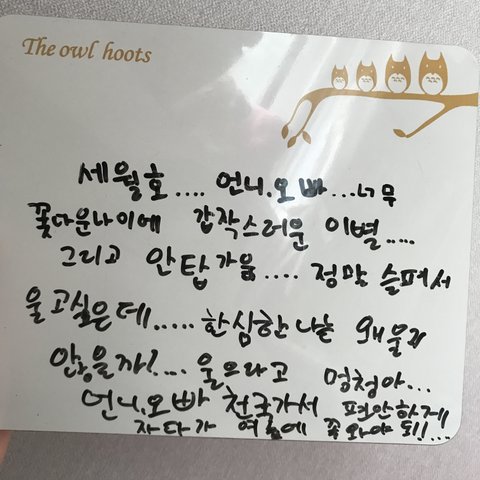 The owl hoots
세월호.... 언니.오빠...너무
꽃다운나이에 갑작스러운 이별.....
그리고 안탑가움.... 정말 슬퍼서
울고싶은데..... 한심한 나는 왜 울지
않을까!... 울으라고 멍청아...
언니.오빠 천국가서 편안하게
자다가 여름에 꼭 와야 되!!...